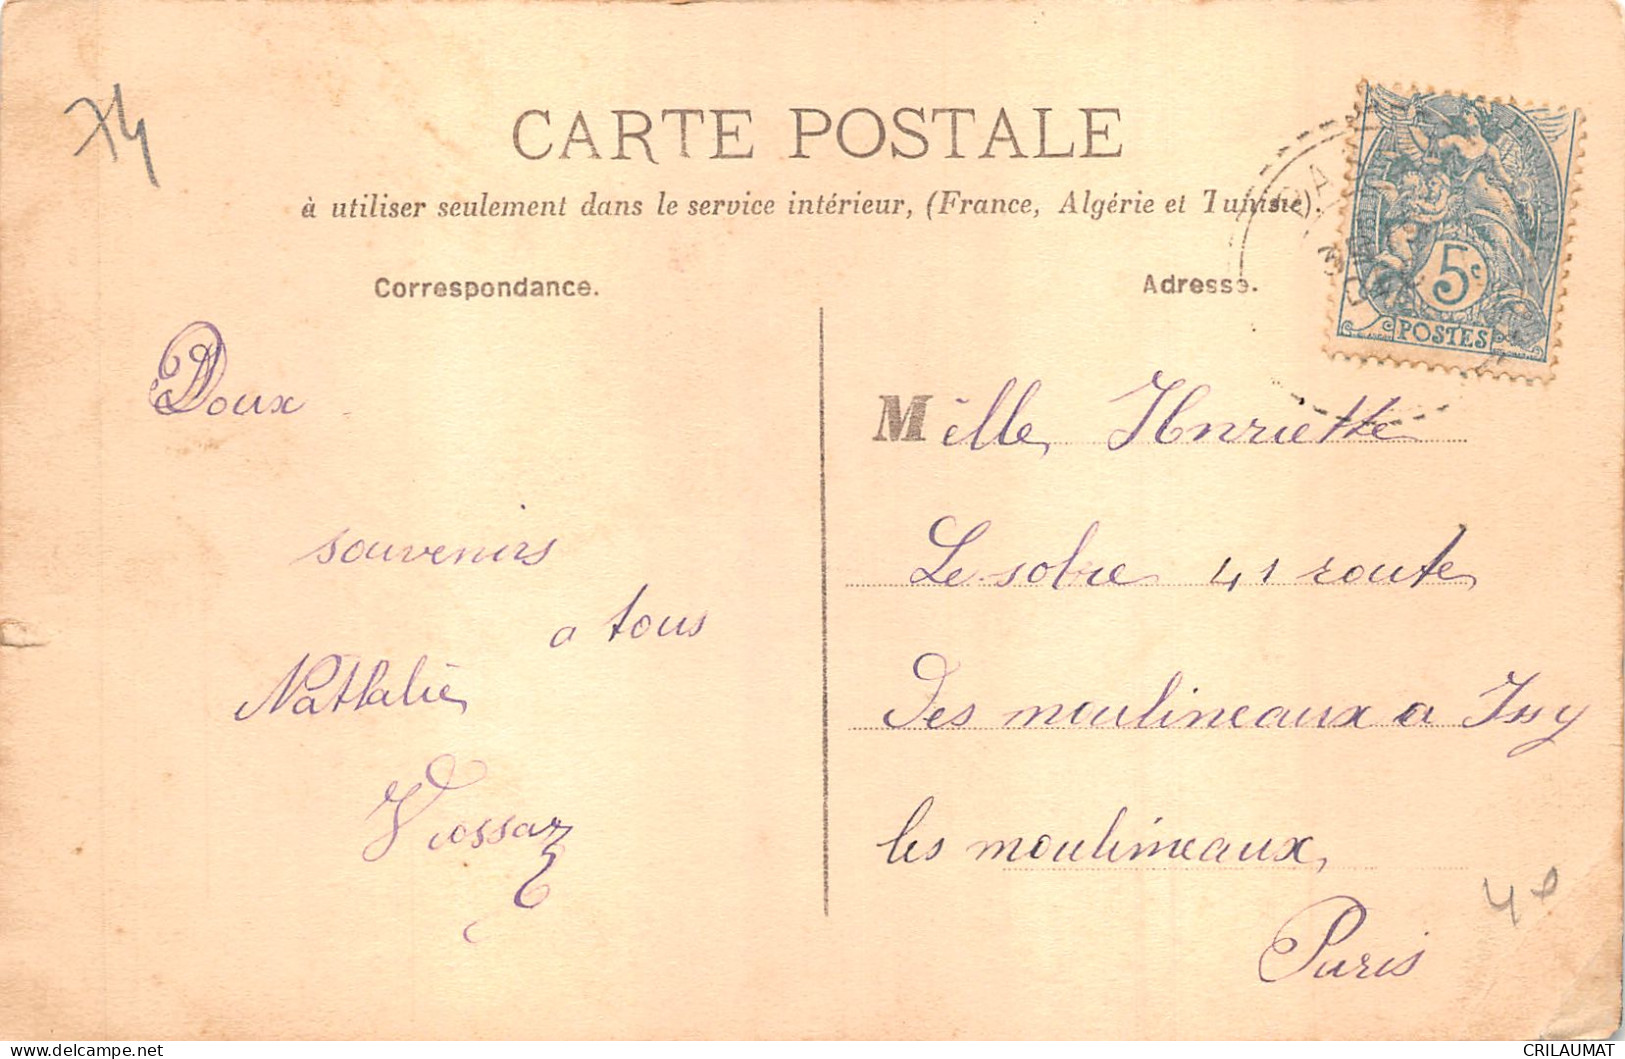 74
CARTE POSTALE
à utiliser seulement dans le service intérieur, (France, Algérie et Tunisie).
Correspondance.
Doux
souvenirs
a tous
Nathalie
Adresse.
Mille Henriette
Lesobre 41 route
Des moulineaux a Issy
les moulineaux,
Paris
5c
POSTES
CRILAUMAT